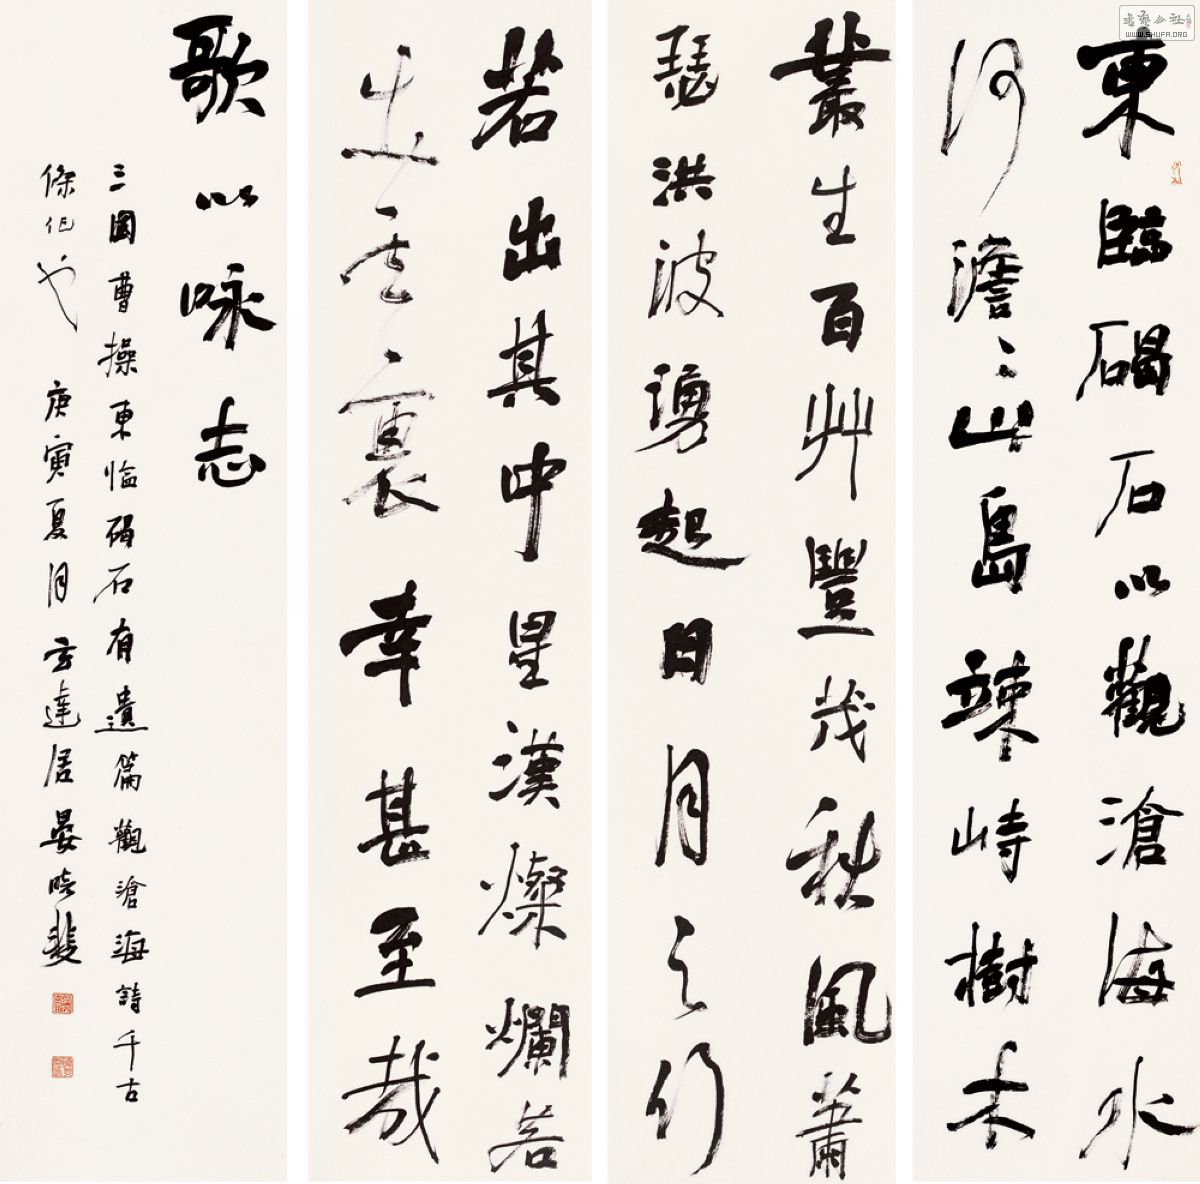 東臨碣石以觀滄海水
河澹〻山島竦峙樹木
叢生百艸豐茂秋風蕭
瑟洪波湧起日月之行
若出其中星漢燦爛若
出其裏幸甚至哉
歌以咏志
三國曹操東臨碣石有遺篇觀滄海詩千古
傑作也 庚寅夏月方達居晏曉斐
書藝公社
WWW.SHUFA.ORG